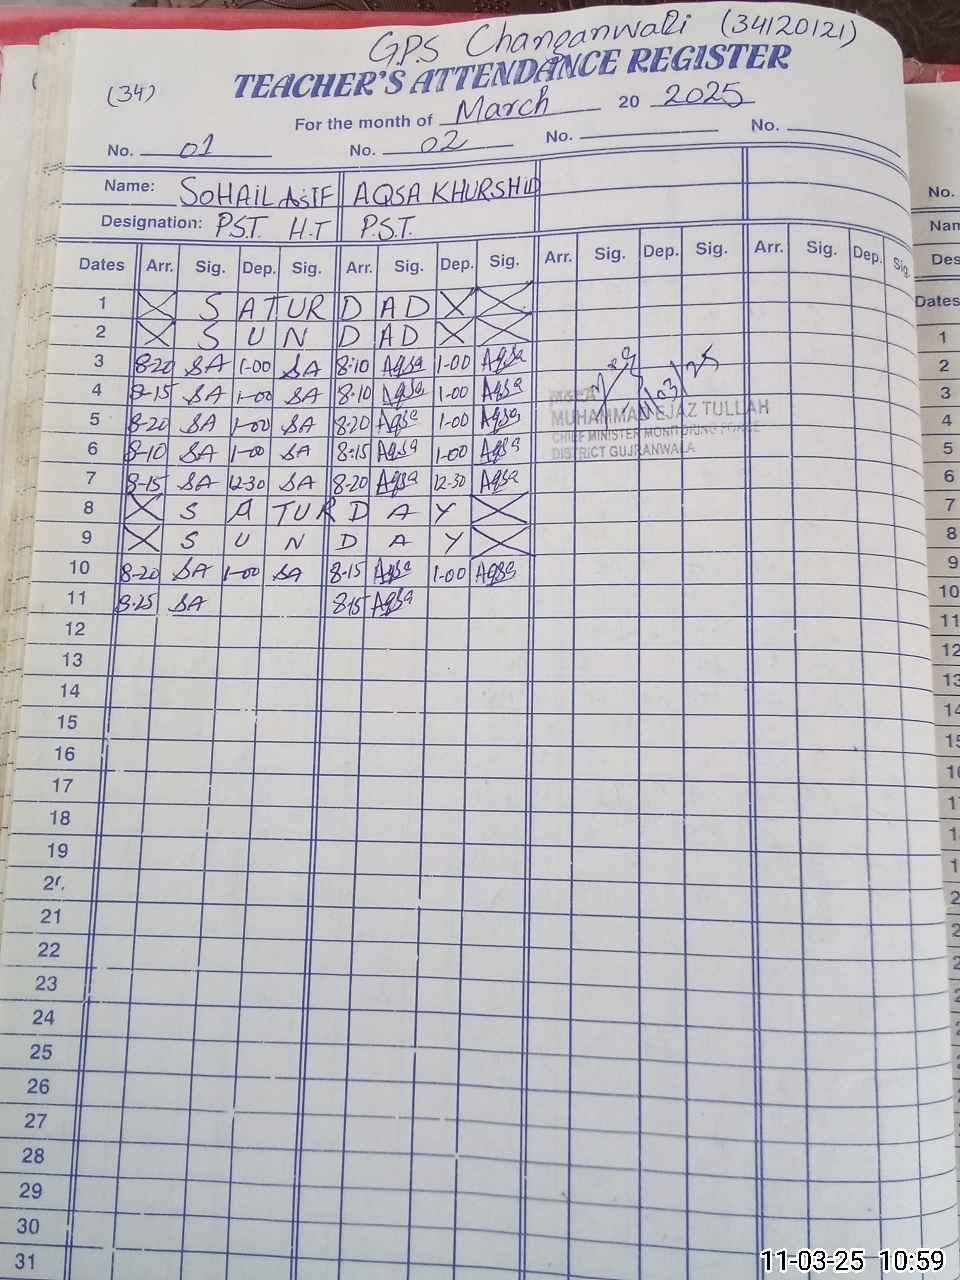 GPS Changanwali (34120121)
(34) TEACHER'S ATTENDANCE REGISTER
For the month of March 20 2025
No. 01 No. 02 No. No.
Name: SOHAIL ASIF AQSA KHURSHID
Designation: P.S.T. H.T P.S.T.
Dates Arr. Sig. Dep. Sig. Arr. Sig. Dep. Sig. Arr. Sig. Dep. Sig. Arr. Sig. Dep. Sig.
1 S A TUR D AD
2 S U N D AD
3 8-20 SA 1-00 SA 8:10 Aqsa 1-00 Aqsa
4 8-15 SA 1-00 SA 8-10 Aqsa 1-00 Aqsa
5 8-20 SA 1-00 SA 8-20 Aqsa 1-00 Aqsa
6 8-10 SA 1-00 SA 8:15 Aqsa 1-00 Aqsa
7 8-15 SA 12-30 SA 8-20 Aqsa 12-30 Aqsa
8 S A TUR D A Y
9 S U N D A Y
10 8-20 SA 1-00 SA 8-15 Aqsa 1-00 Aqsa
11 8-25 SA 8-15 Aqsa
12
13
14
15
16
17
18
19
20
21
22
23
24
25
26
27
28
29
30
31
11/03/25
MUHAMMAD EJAZ TULLAH
CHIEF MINISTER MONITORING FORCE
DISTRICT GUJRANWALA
No.
Nam
Des
Dates
1
2
3
4
5
6
7
8
9
10
11
12
13
14
11-03-25 10:59